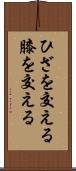 ひざを交える
膝を交える